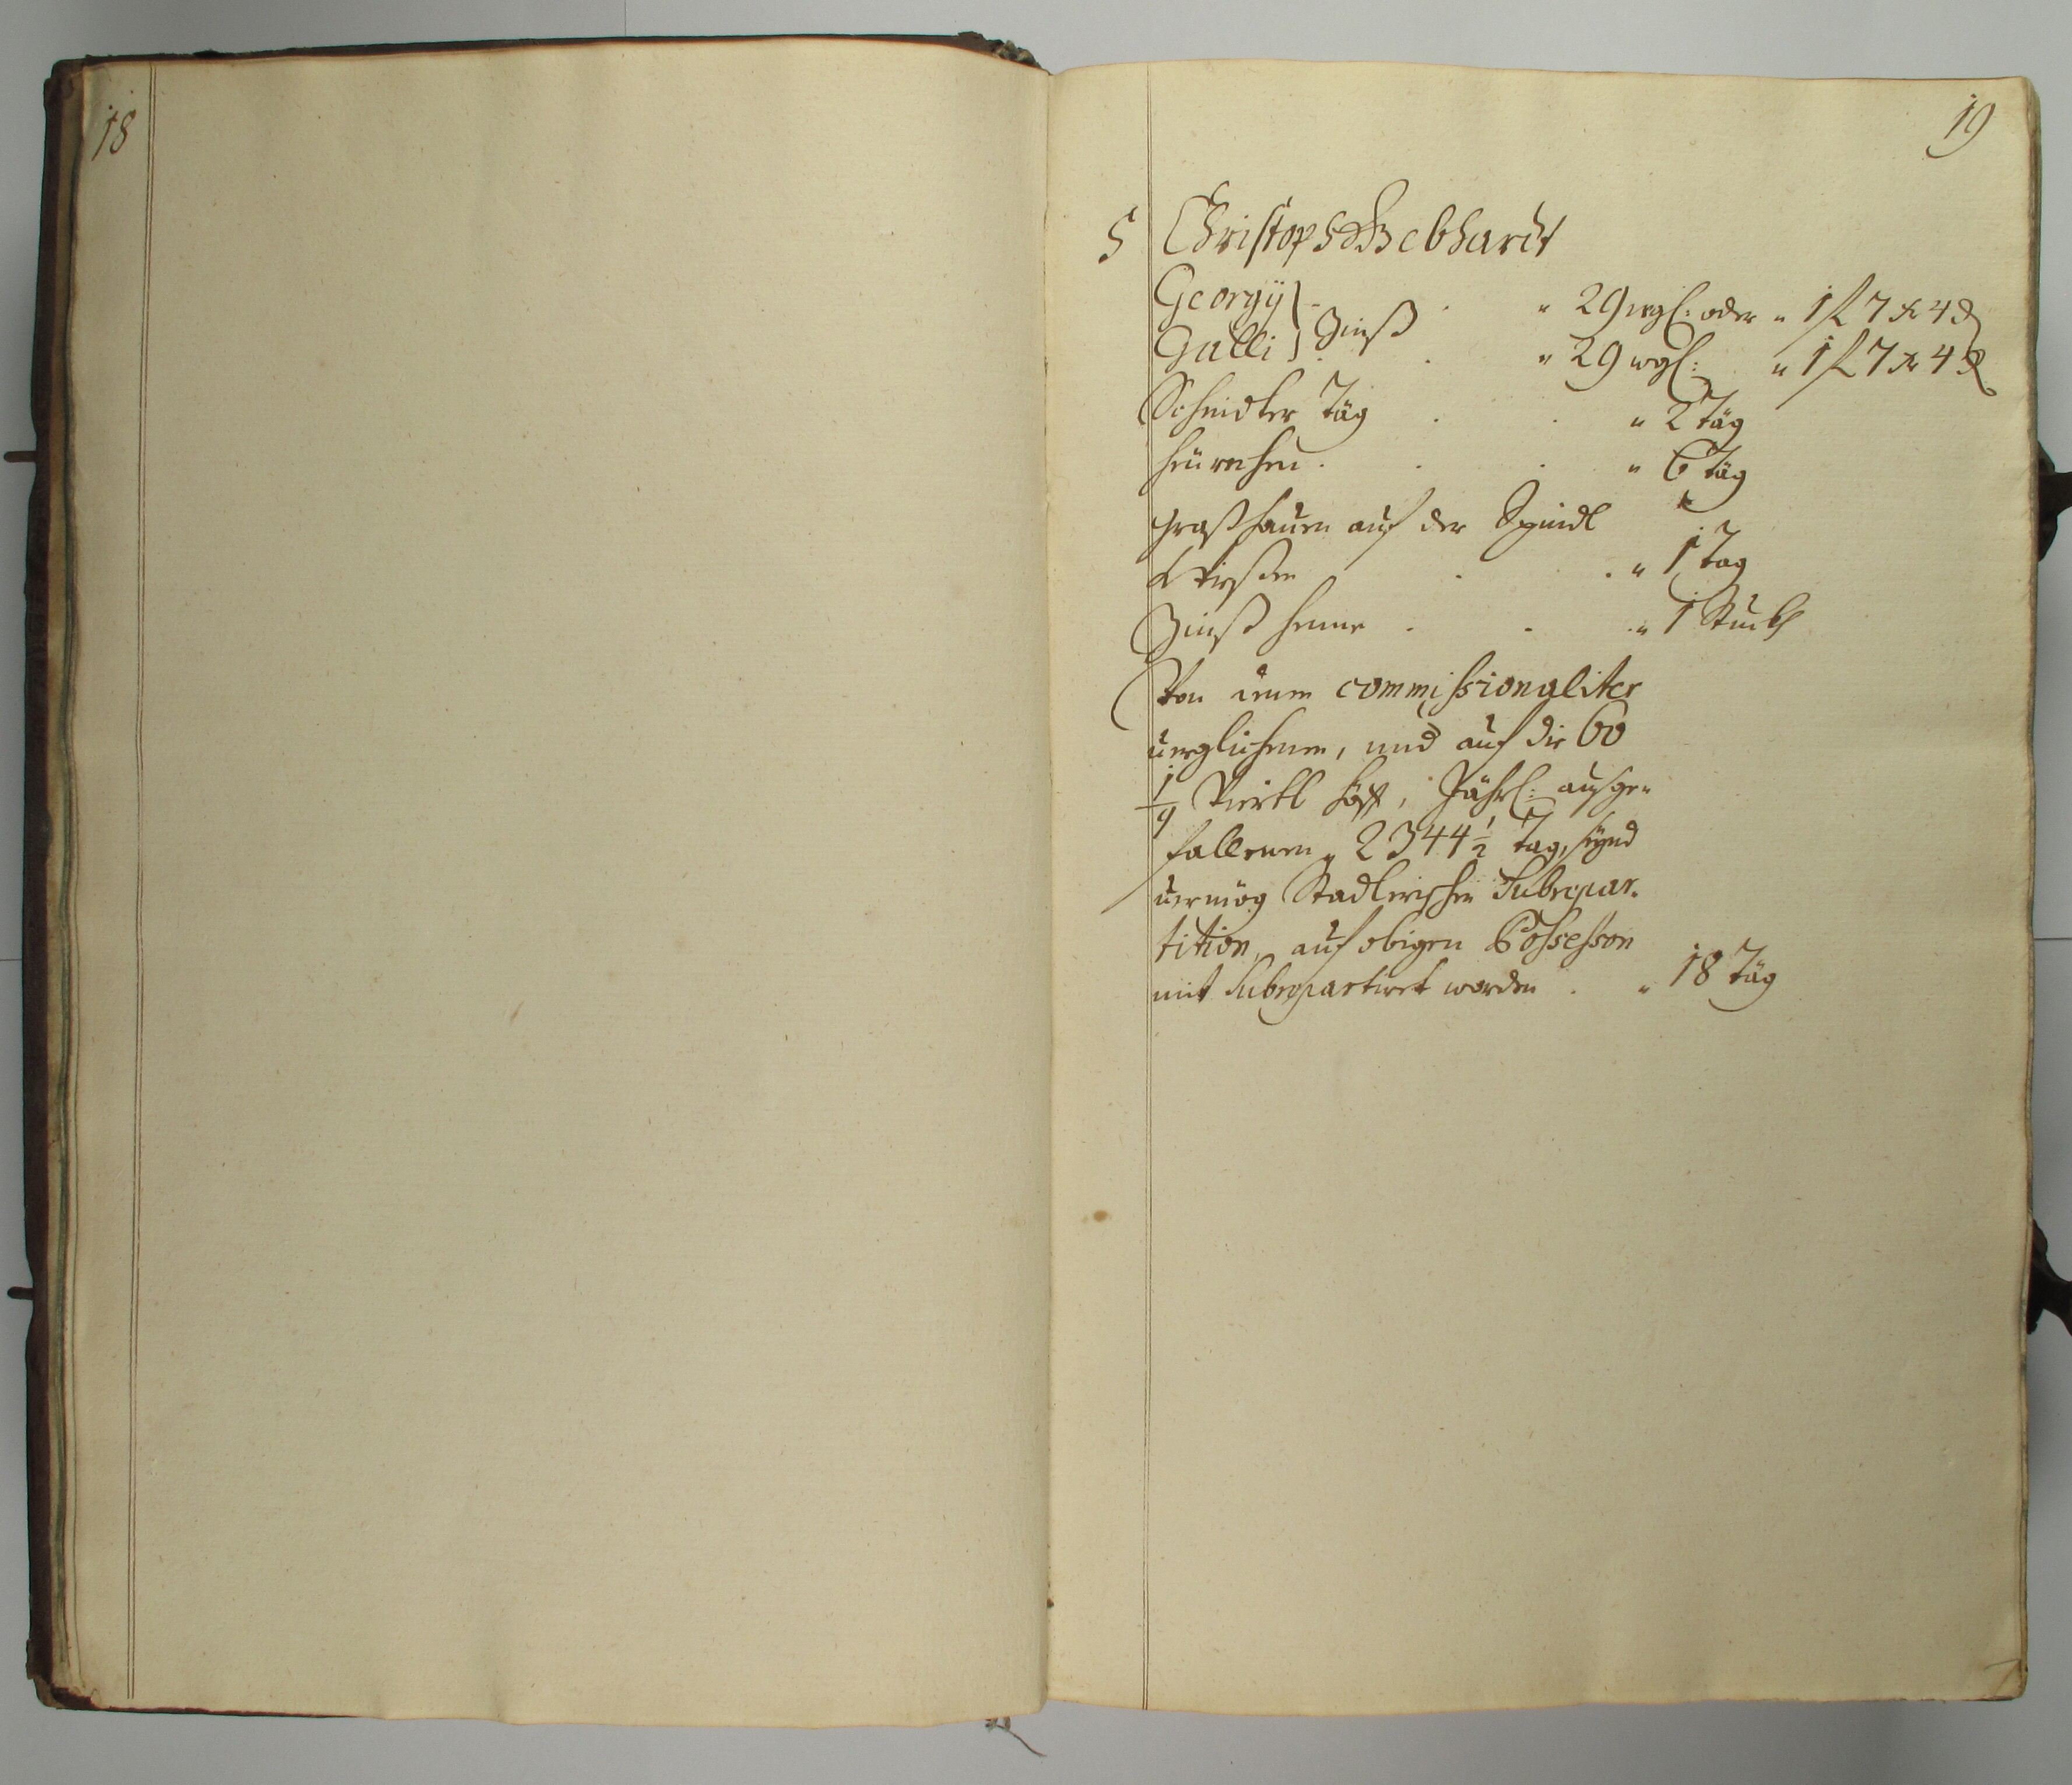 18
19
5 Christoph Gebhardt
Georgÿ } Zinß . „ 29 wgl: oder „ 1 f 7 xr 4 d
Galli } . . „ 29 wgl: „ 1 f 7 xr 4 d
Schnidter Täg . . „ 2 Täg
heürechen . . . „ 6 Täg
graßhauen auf der Spindl
Wiesen . . „ 1 Tag
Zinß henne . . „ 1 Stuckh
Von einem commissionaliter
verglichenen, und auf die 60
1/9 Viertl höff, Jährl: ausge„
fallenen „ 2344 1/2 Tag, seynd
vermög Stadlerischen Subrepar„
tition, auf obigen Possessorn
mit Subrepartiret worden . „ 18 Täg